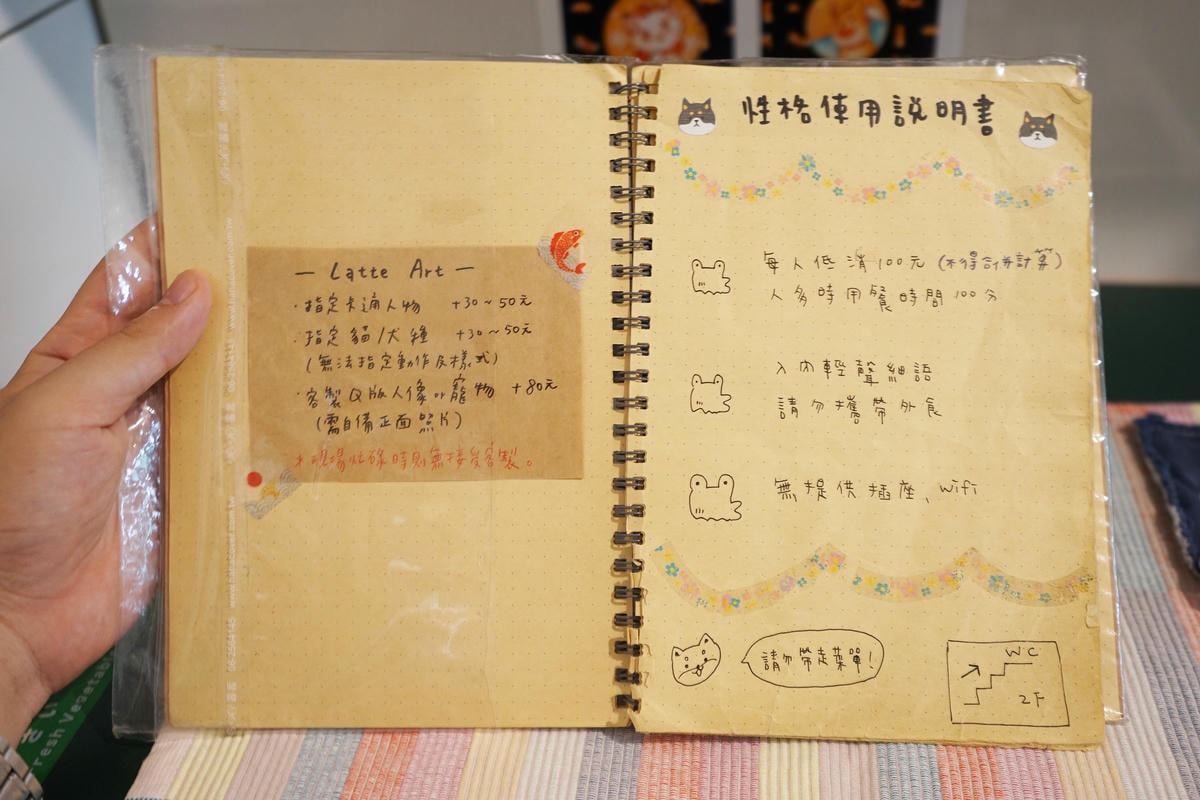 — Latte Art —
·指定卡通人物 +30~50元
·指定貓/犬種 +30~50元
(無法指定動作及樣式)
·客製Q版人像or寵物 +80元
(需自備正面照片)
*現場忙碌時則無接受客製。
性格使用說明書
每人低消100元(不得合併計算)
人多時用餐時間100分
入內輕聲細語
請勿攜帶外食
無提供插座、wifi
請勿帶走菜單!
WC
2F
resh Vegeta